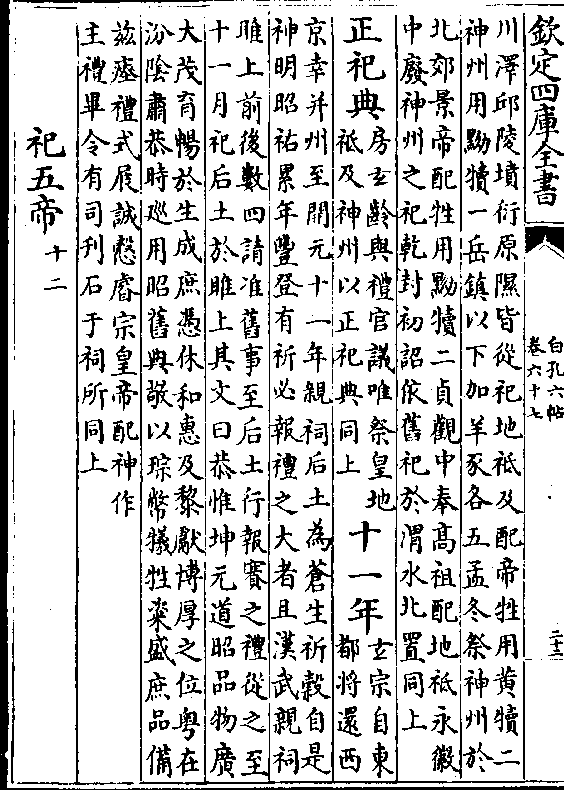 欽定四庫全書
白孔六帖
卷六十七
川澤邱陵墳衍原隰皆從祀地祗及配帝牲用黄犢二
神州用黝犢一岳鎮以下加羊豕各五孟冬祭神州於
北郊景帝配牲用黝犢二貞觀中奉高祖配地祗永徽
中廢神州之祀乾封初詔依舊祀於渭水北置同上
正祀典
房玄齡與禮官議唯祭皇地
祗及神州以正祀典同上
十一年
玄宗自東
都將還西
京幸并州至開元十一年親祠后土為蒼生祈穀自是
神明昭祐累年豐登有祈必報禮之大者且漢武親祠
脽上前後數四請准舊事至后土行報賽之禮從之至
十一月祀后土於脽上其文曰恭惟坤元道昭品物廣
大茂育暢於生成庶憑休和惠及黎獻博厚之位粤在
汾陰肅恭時廵用昭舊典敬以琮幣犧牲粢盛庶品備
兹瘞禮式展誠慤睿宗皇帝配神作
主禮畢令有司刊石于祠所同上
祀五帝十二